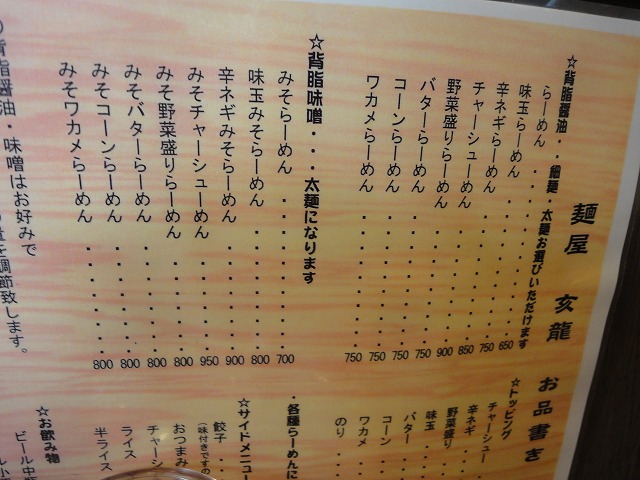 麺屋 亥龍 お品書き
☆背脂醤油・・細麺・太麺お選びいただけます
らーめん 650
味玉らーめん 750
辛ネギらーめん 850
チャーシューめん 900
野菜盛りらーめん 750
バターらーめん 750
コーンらーめん 750
ワカメらーめん 750
☆背脂味噌・・・太麺になります
みそらーめん 700
味玉みそらーめん 800
辛ネギみそらーめん 900
みそチャーシューめん 950
みそ野菜盛りらーめん 800
みそバターらーめん 800
みそコーンらーめん 800
みそワカメらーめん 800
背脂醤油・味噌はお好みで
量を調節致します。
☆トッピング
チャーシュー
辛ネギ
野菜盛り
味玉
バター
コーン
ワカメ
のり
・各種らーめんに
☆サイドメニュー
餃子
(味付きですの
おつまみ
チャーシ
ライス
半ライス
☆お飲み物
ビール中瓶